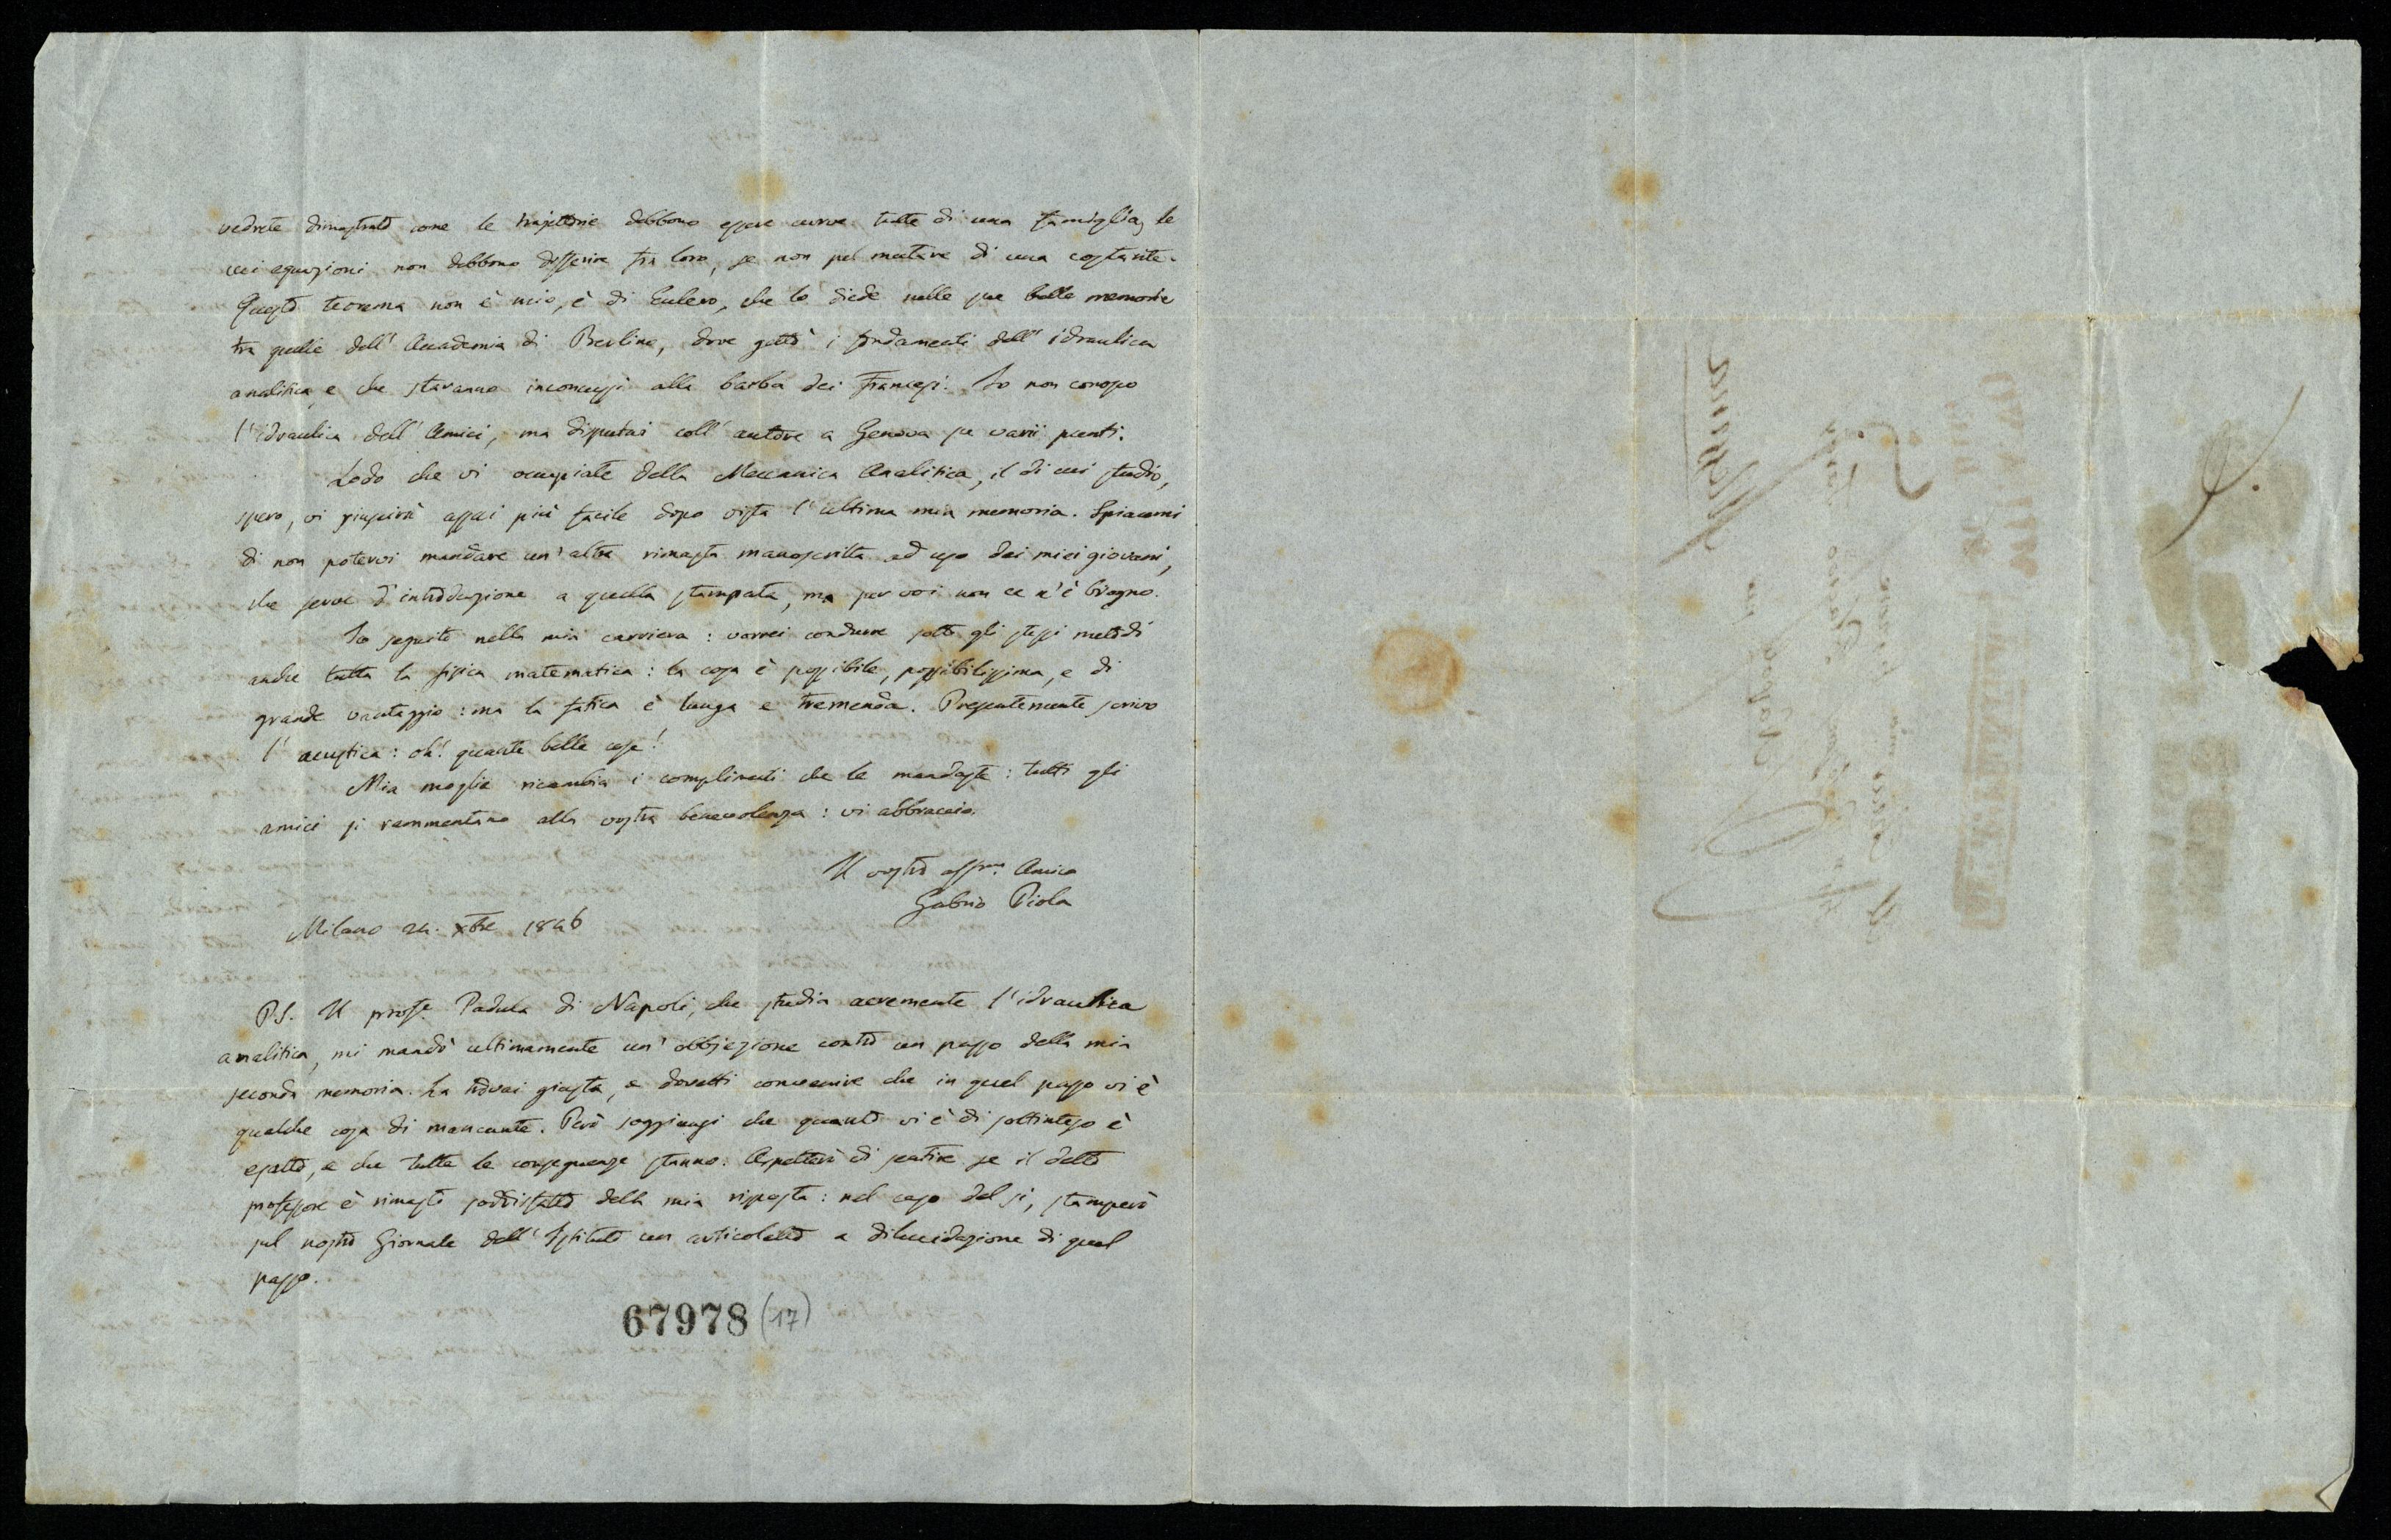 vedrete dimostrato come le trajettorie debbono essere curve tutte di una famiglia, le
cui equazioni non debbono differire fra loro, se non pel mutare di una costante.
Questo teorema non è mio, è di Eulero, che lo diede nelle sue belle memorie
tra quelle dell'Accademia di Berlino, dove gettò i fondamenti dell'idraulica
analitica e che staranno inconcussi alla barba dei Francesi. Io non conosco
l'idraulica dell'Amici, ma disputai coll'autore a Genova su varii punti.
Lodo che vi occupiate della Meccanica Analitica, il di cui studio,
spero, vi riuscirà assai più facile dopo vista l'ultima mia memoria. Spiacemi
di non potervi mandare un'altra rimasta manoscritta ad uso dei miei giovani,
che serve d'introduzione a quella stampata, ma per voi non ce n'è bisogno.
Io seguito nella mia carriera: vorrei condurre sotto gli stessi metodi
anche tutta la fisica matematica: la cosa è possibile, possibilissima, e di
grande vantaggio: ma la fatica è lunga e tremenda. Presentemente scrivo
l'acustica: oh! quante belle cose!
Mia moglie ricambia i complimenti che le mandaste: tutti gli
amici si rammentano alla vostra benevolenza: vi abbraccio.
Il vostro affmo. Amico
Gabrio Piola
Milano 24. xbre 1846
PS. Il profe. Padula di Napoli, che studia acremente l'idraulica
analitica, mi mandò ultimamente un'obbjezione contro un passo della mia
seconda memoria. La trovai giusta, e dovetti convenire che in quel passo vi è
qualche cosa di mancante. Però soggiunsi che quanto vi è di sottinteso è
esatto, e che tutte le conseguenze stanno. Aspetterò di sentire se il detto
professore è rimasto soddisfatto della mia risposta: nel caso del sì, stamperò
sul nostro Giornale dell'Istituto un articoletto a dilucidazione di quel
passo.
67978 (17)